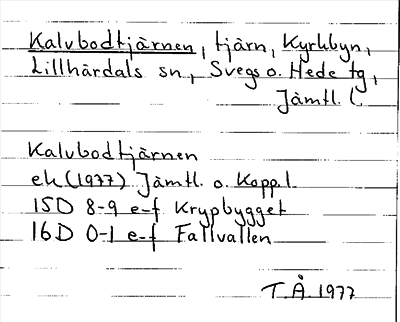 Kalvbodtjärnen, tjärn, Kyrkbyn,
Lillhärdals sn, Svegs o. Hede tg,
Jämtl. l.
Kalvbodtjärnen
ek (1977) Jämtl. o. Kopp. l.
15D 8-9 e-f Krypbygget
16D 0-1 e-f Fallvallen
T. Å. 1977